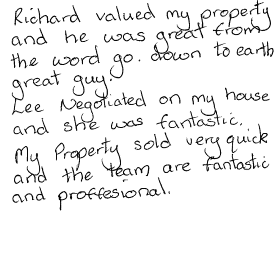 Richard valued my property
and he was great from
the word go. down to earth
great guy.
Lee Negotiated on my house
and she was fantastic.
My Property sold very quick
and the team are fantastic
and proffesional.